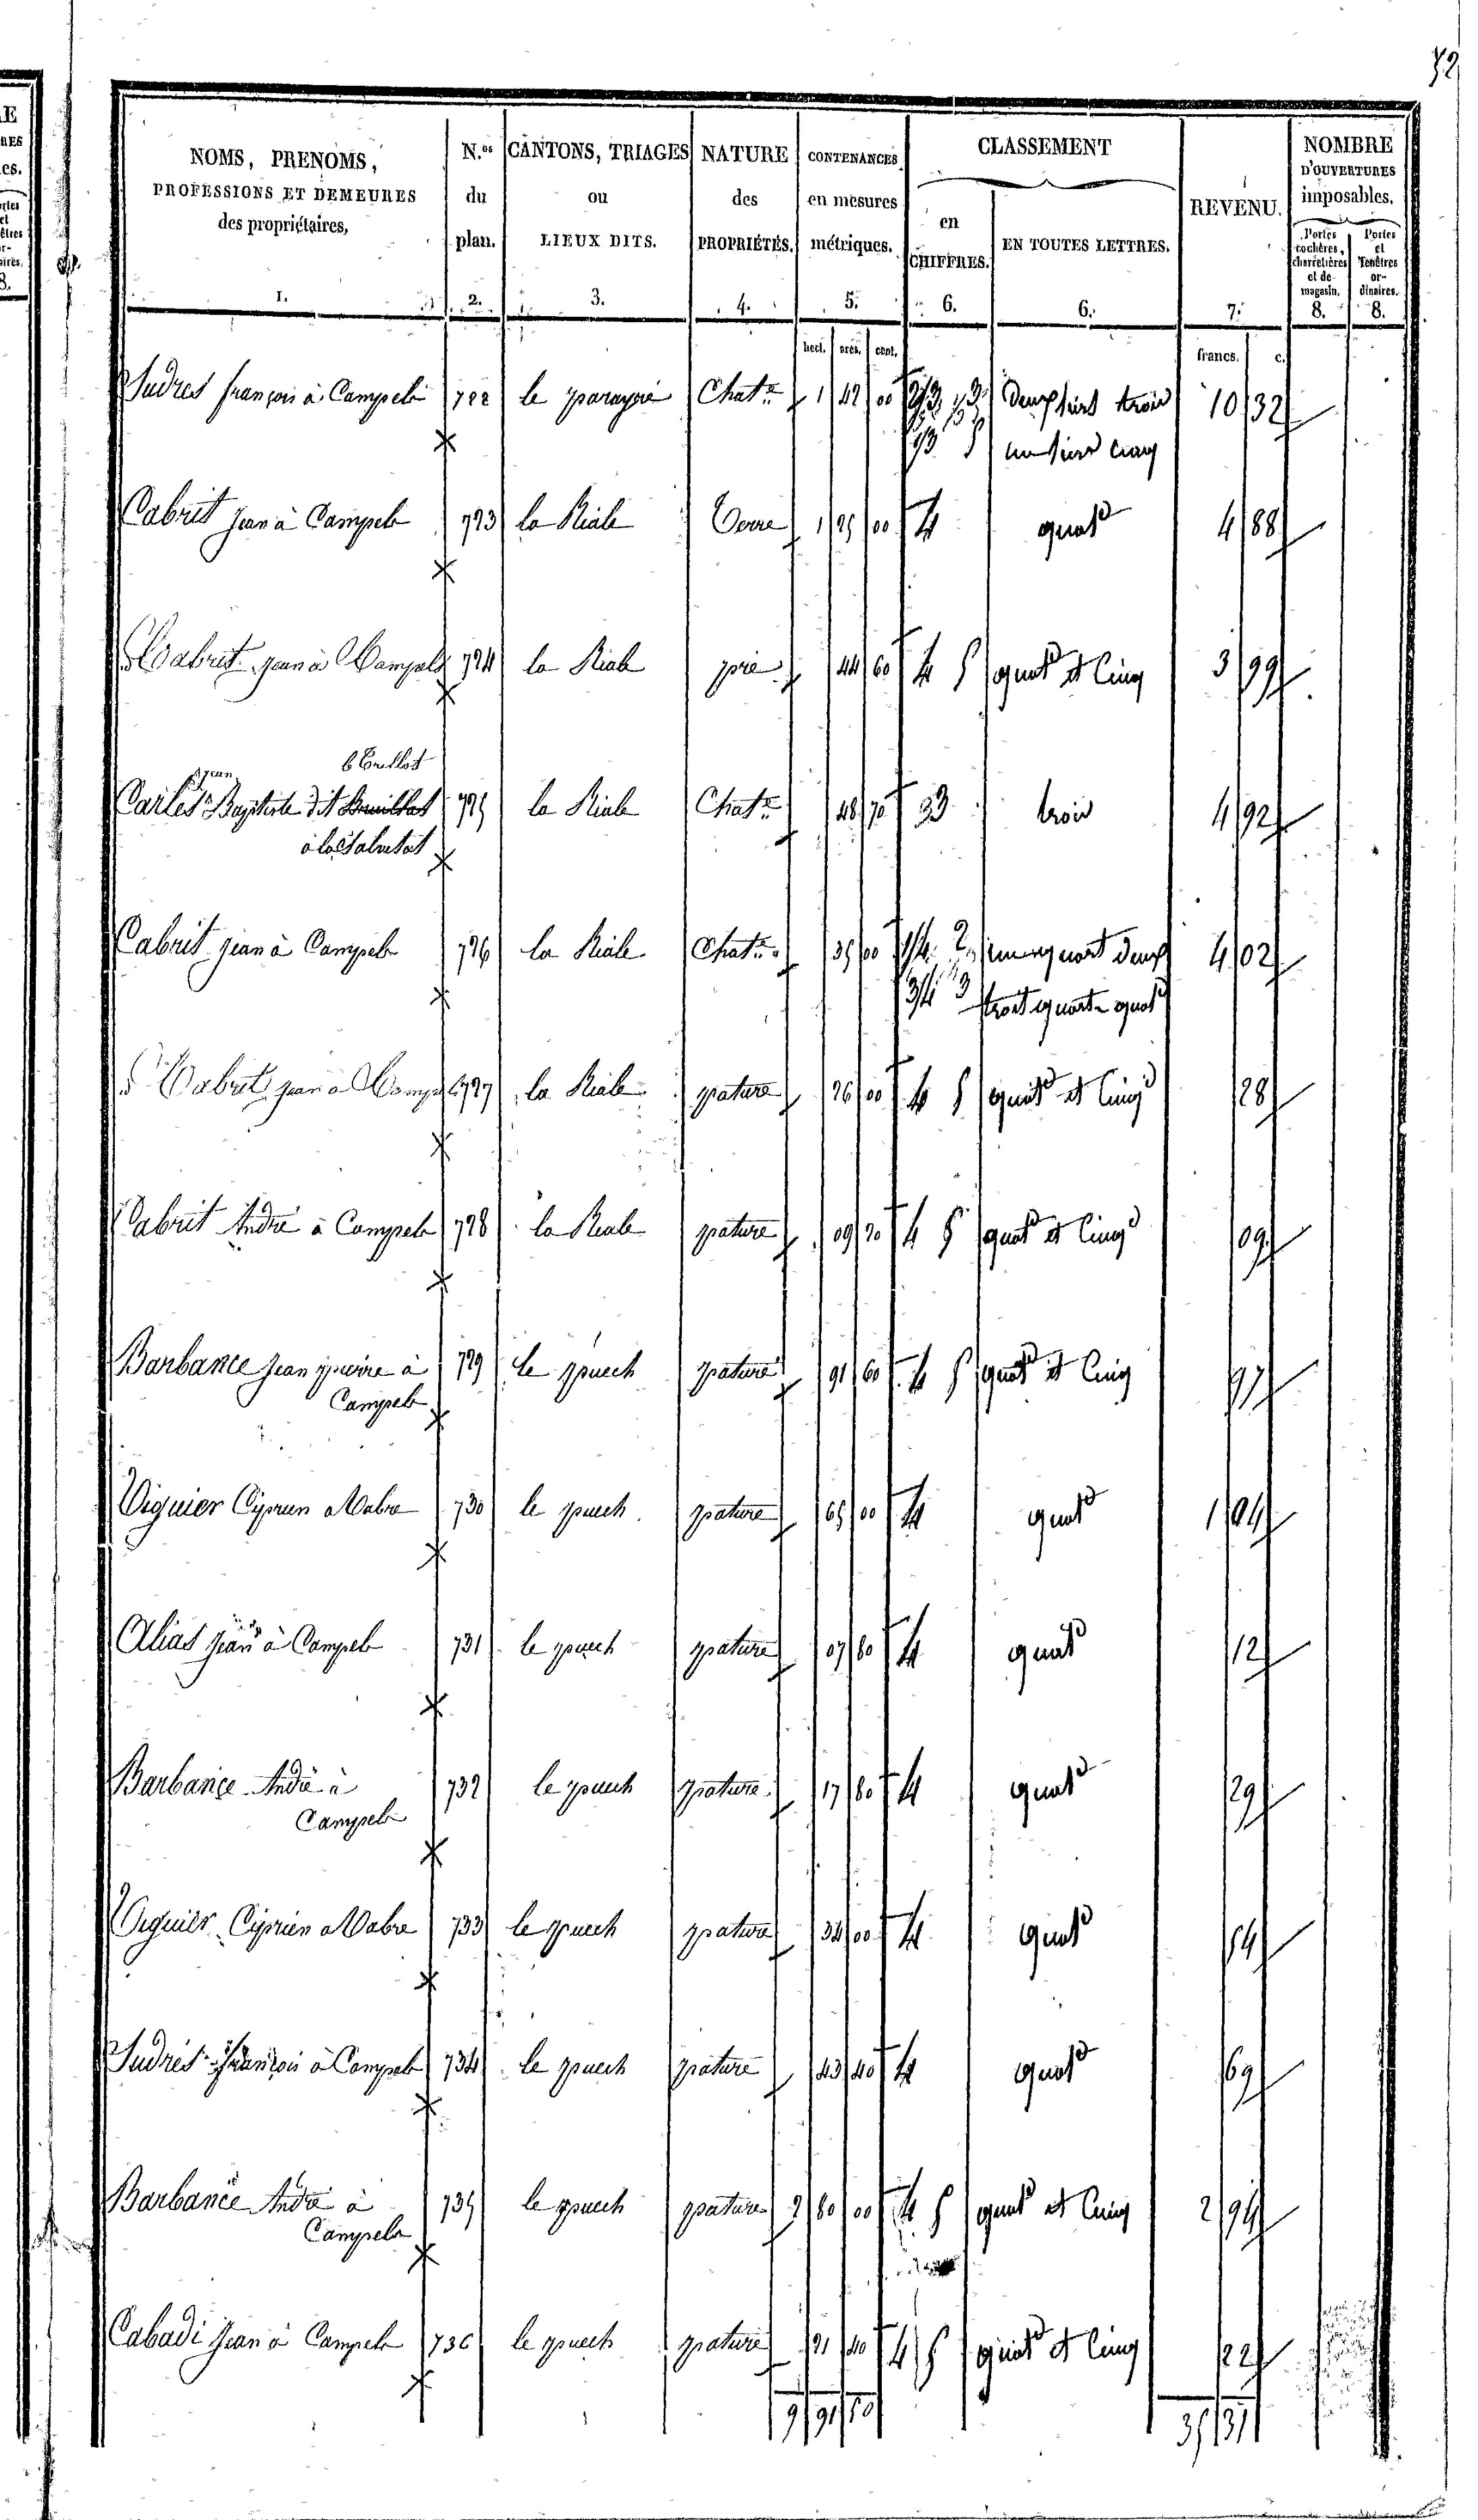 NOMS, PRENOMS, PROFESSIONS ET DEMEURES des propriétaires, 1.
N.os du plan. 2.
CANTONS, TRIAGES ou LIEUX DITS. 3.
NATURE des PROPRIÉTÉS. 4.
CONTENANCES en mesures métriques. 5.
CLASSEMENT
en CHIFFRES. 6.
EN TOUTES LETTRES. 6.
REVENU. 7.
NOMBRE D'OUVERTURES imposables.
Portes cochères, charretières et de magasin. 8.
Portes et Fenêtres ordinaires. 8.
hect. ares. cent. francs. c.
Sudres françois à Campels 722 le Chat.re 1 42 00 2/3 3 deux tiers trois 10 32
1/3 5 un tiers cinq
Cabrit jean à Campels 723 la Riale Terre 1 95 00 4 quat 4 88
Cabrit jean à Campels 724 la Riale pré 44 60 4 5 quat et cinq 3 99
jean
Carles Baptiste dit
à la Salvetat 725 la Riale Chat.re 48 70 3 trois 4 92
Cabrit jean à Campels 726 la Riale Chat.re 35 00 1/4 2 un quart deux 4 02
3/4 3 trois quarts
Cabrit jean à Campels 727 la Riale pature 26 00 4 5 quat et cinq 28
Cabrit André à Campels 728 la Riale pature 09 20 4 5 quat et cinq 09
Barbance jean pierre à 729 le puech pature 91 60 4 5 quat et cinq 97
Campels
Viguier Ciprien a Vabre 730 le puech pature 65 00 4 quat 1 04
Alias jean à Campels 731 le puech pature 07 80 4 quat 12
Barbance André à 732 le puech pature 17 80 4 quat 29
Campels
Viguier Ciprien a Vabre 733 le puech pature 34 00 4 quat 54
Sudres François à Campels 734 le puech pature 43 40 4 quat 69
Barbance André à 735 le puech pature 2 80 00 4 5 quat et cinq 2 94
Campels
Cabadi Jean à Campels 736 le puech pature 21 40 4 5 quat et cinq 22
35 31